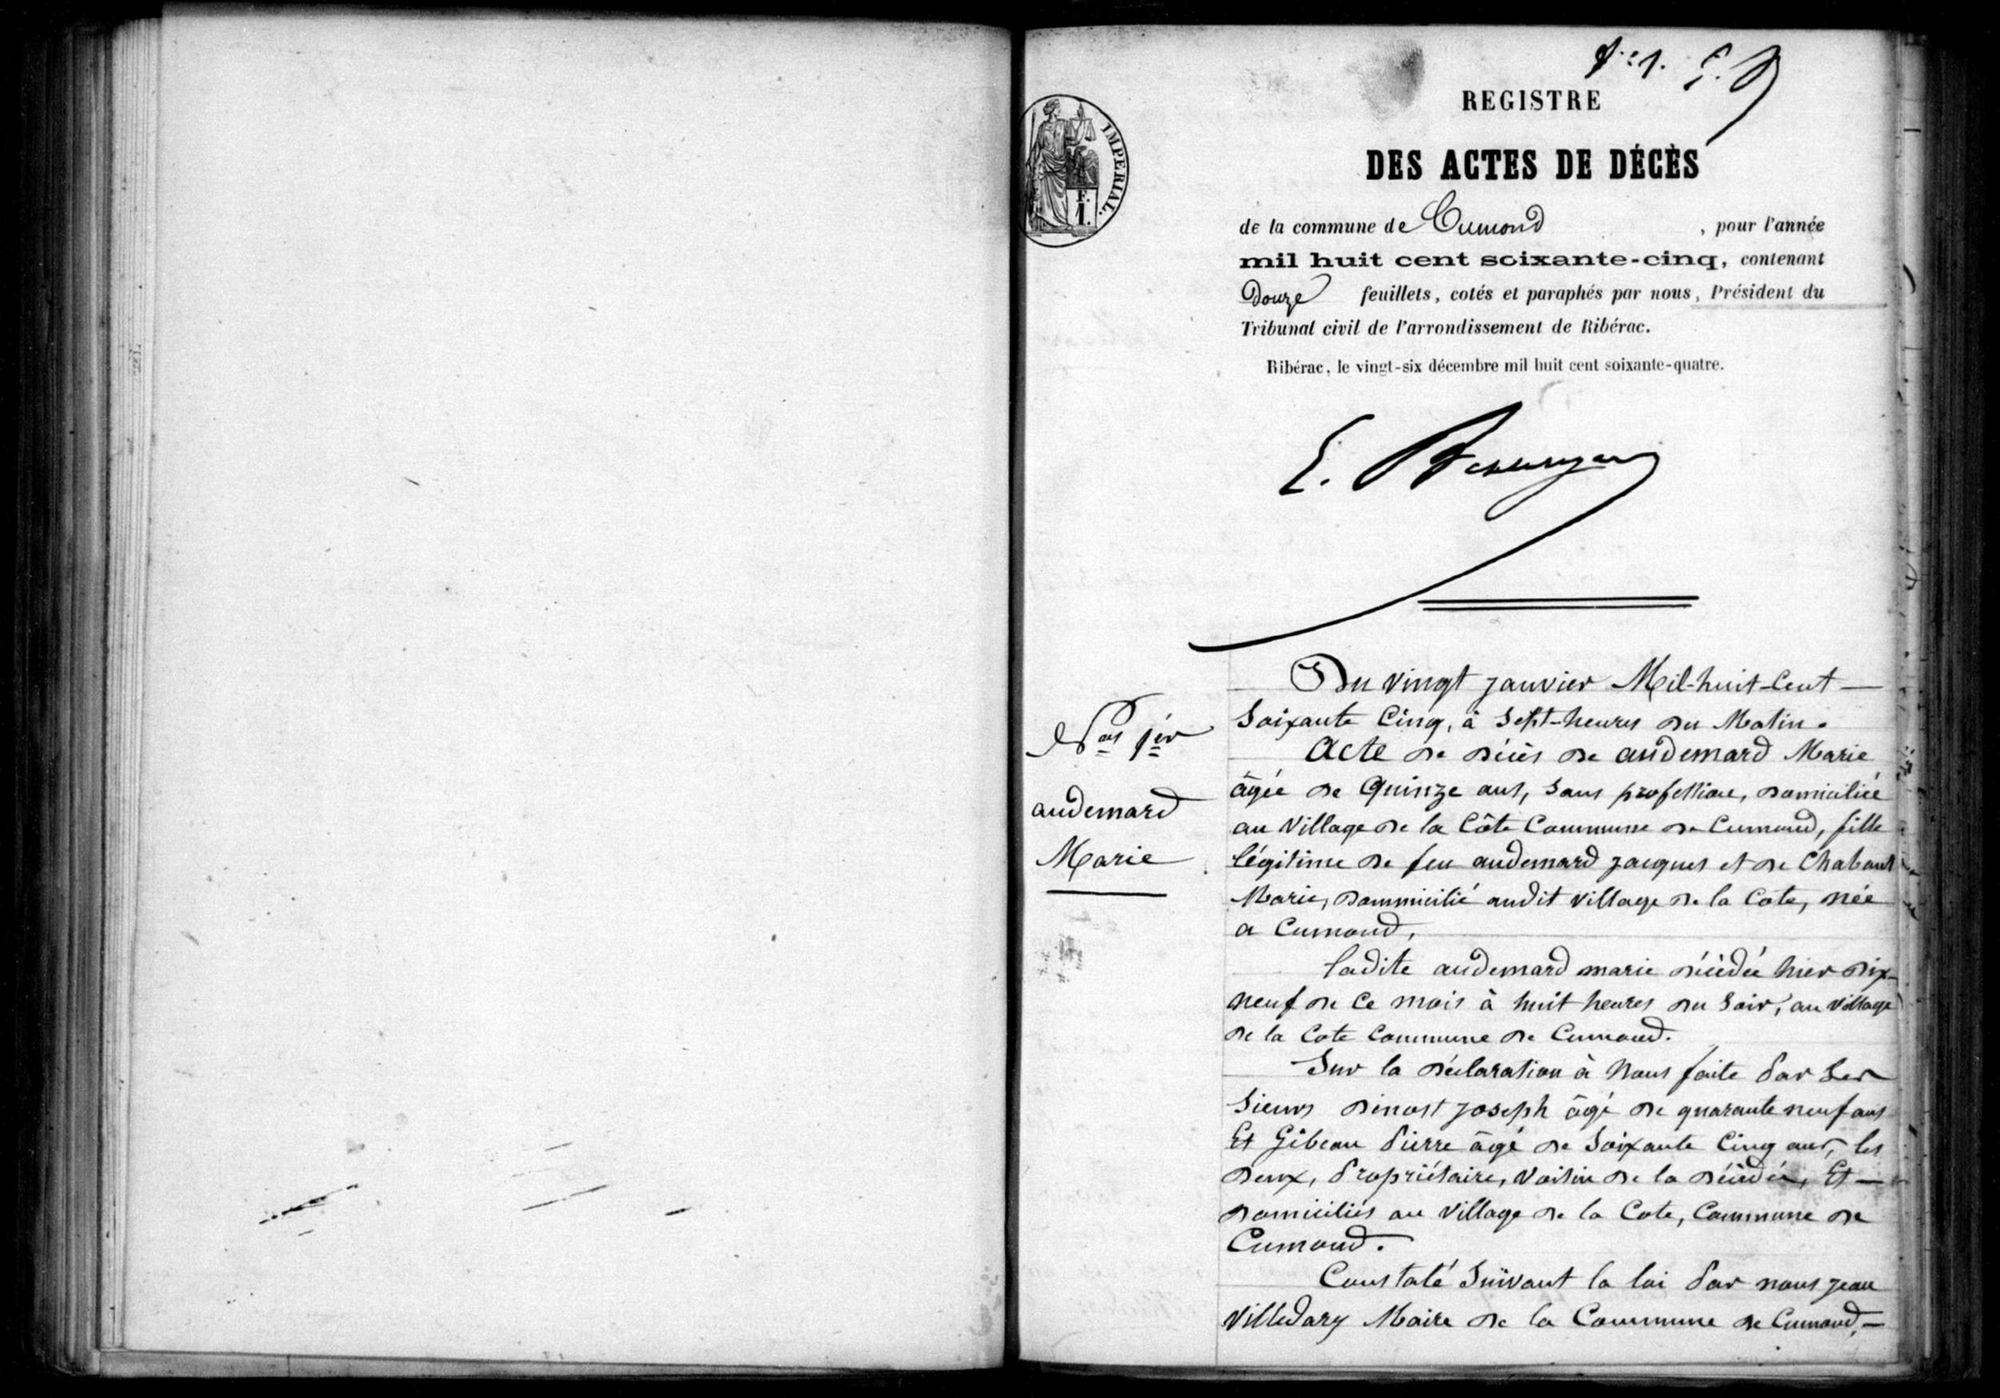 f. 1.
REGISTRE
IMPERIAL.
F.
1.
DES ACTES DE DÉCÈS
de la commune de Cumond, pour l'année
mil huit cent soixante-cinq, contenant
Douze feuillets, cotés et paraphés par nous, Président du
Tribunal civil de l'arrondissement de Ribérac.
Ribérac, le vingt-six décembre mil huit cent soixante-quatre.
E.
Du vingt janvier Mil-huit-Cent
Soixante Cinq, à Sept-heures du Matin.
Acte de décès de audemard Marie
âgée de Quinze ans, sans profession, domicilié
au Village de la Côte Commune de Cumond, fille
légitime de feu audemard jacques et de Chabaud
Marie, Dommicilié audit village de la Cote, née
a Cumond,
ladite audemard marie décèdée hier dix-
neuf de ce mois à huit heures du soir, au village
de la Cote Commune de Cumond.
Sur la déclaration à Nous faite Par Les
Sieurs Dinost joseph âgé de quarante neuf ans
Et Gibeau Pierre âgé de Soixante Cinq ans, les
deux, Propriétaire, Voisin de la décédée, Et
domiciliés au Village de la Cote, Commune de
Cumond.
Constaté Suivant la loi Par nous jean
Villedary Maire de la Commune de Cumond,
Nos 1er
audemard
Marie